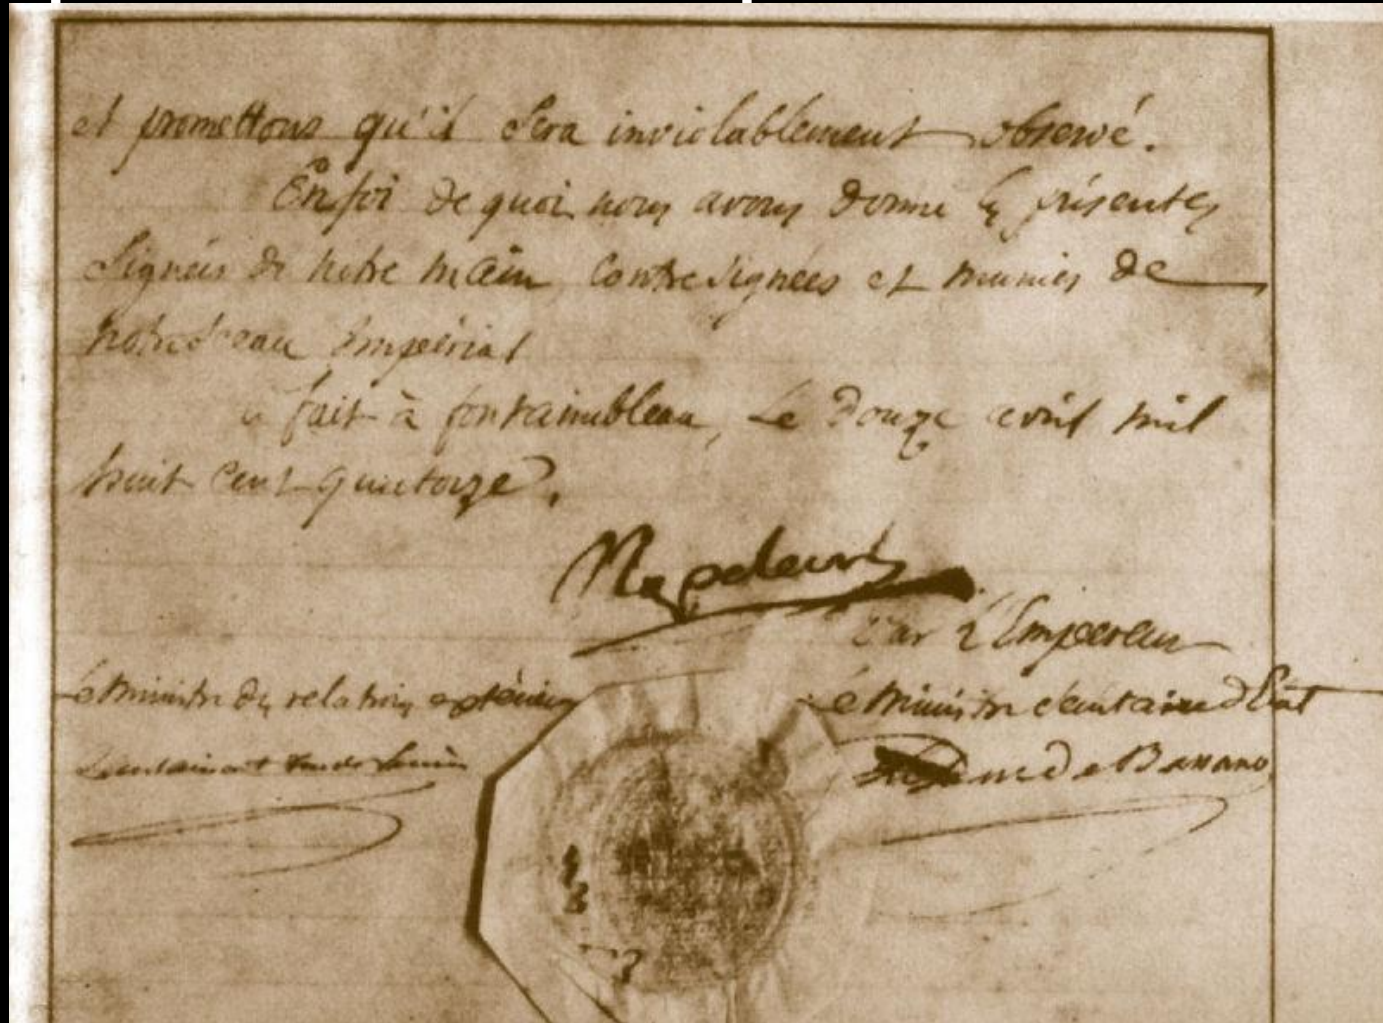 et promettons qu'il sera inviolablement observé.
En foi de quoi nous avons donné les présentes
signées de notre main contresignées et munies de
notre sceau impérial
fait à fontainebleau, Le Douze avril mil
huit cent quatorze.
Napoleon
Par l'Empereur
Le Ministre des relations extérieures
Le Ministre secretaire d'Etat
Duc de Bassano